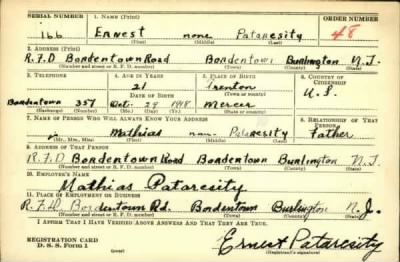 SERIAL NUMBER 1. NAME (Print) ORDER NUMBER
166 ERNEST none PATARESITY 48
(First) (Middle) (Last)
2. ADDRESS (Print)
R.F.D Bordentown Road Bordentown Burlington N.J.
(Number and street or R. F. D. number) (Town) (County) (State)
3. TELEPHONE 4. AGE IN YEARS 5. PLACE OF BIRTH 6. COUNTRY OF CITIZENSHIP
21 Trenton
DATE OF BIRTH (Town or county) U.S.
Bordentown 357 Oct. 29 1918 Mercer
(Exchange) (Number) (Mo.) (Day) (Yr.) (State or country)
7. NAME OF PERSON WHO WILL ALWAYS KNOW YOUR ADDRESS 8. RELATIONSHIP OF THAT PERSON
Mathias none Pataresity Father
(Mr., Mrs., Miss) (First) (Middle) (Last)
9. ADDRESS OF THAT PERSON
R.F.D Bordentown Road Bordentown Burlington N.J.
(Number and street or R. F. D. number) (Town) (County) (State)
10. EMPLOYER'S NAME
Mathias Pataresity
11. PLACE OF EMPLOYMENT OR BUSINESS
R.F.D. Bordentown Rd. Bordentown Burlington N.J.
(Number and street or R. F. D. number) (Town) (County) (State)
I AFFIRM THAT I HAVE VERIFIED ABOVE ANSWERS AND THAT THEY ARE TRUE.
REGISTRATION CARD
D. S. S. Form 1 (over) Ernest Pataresity
(Registrant's signature)